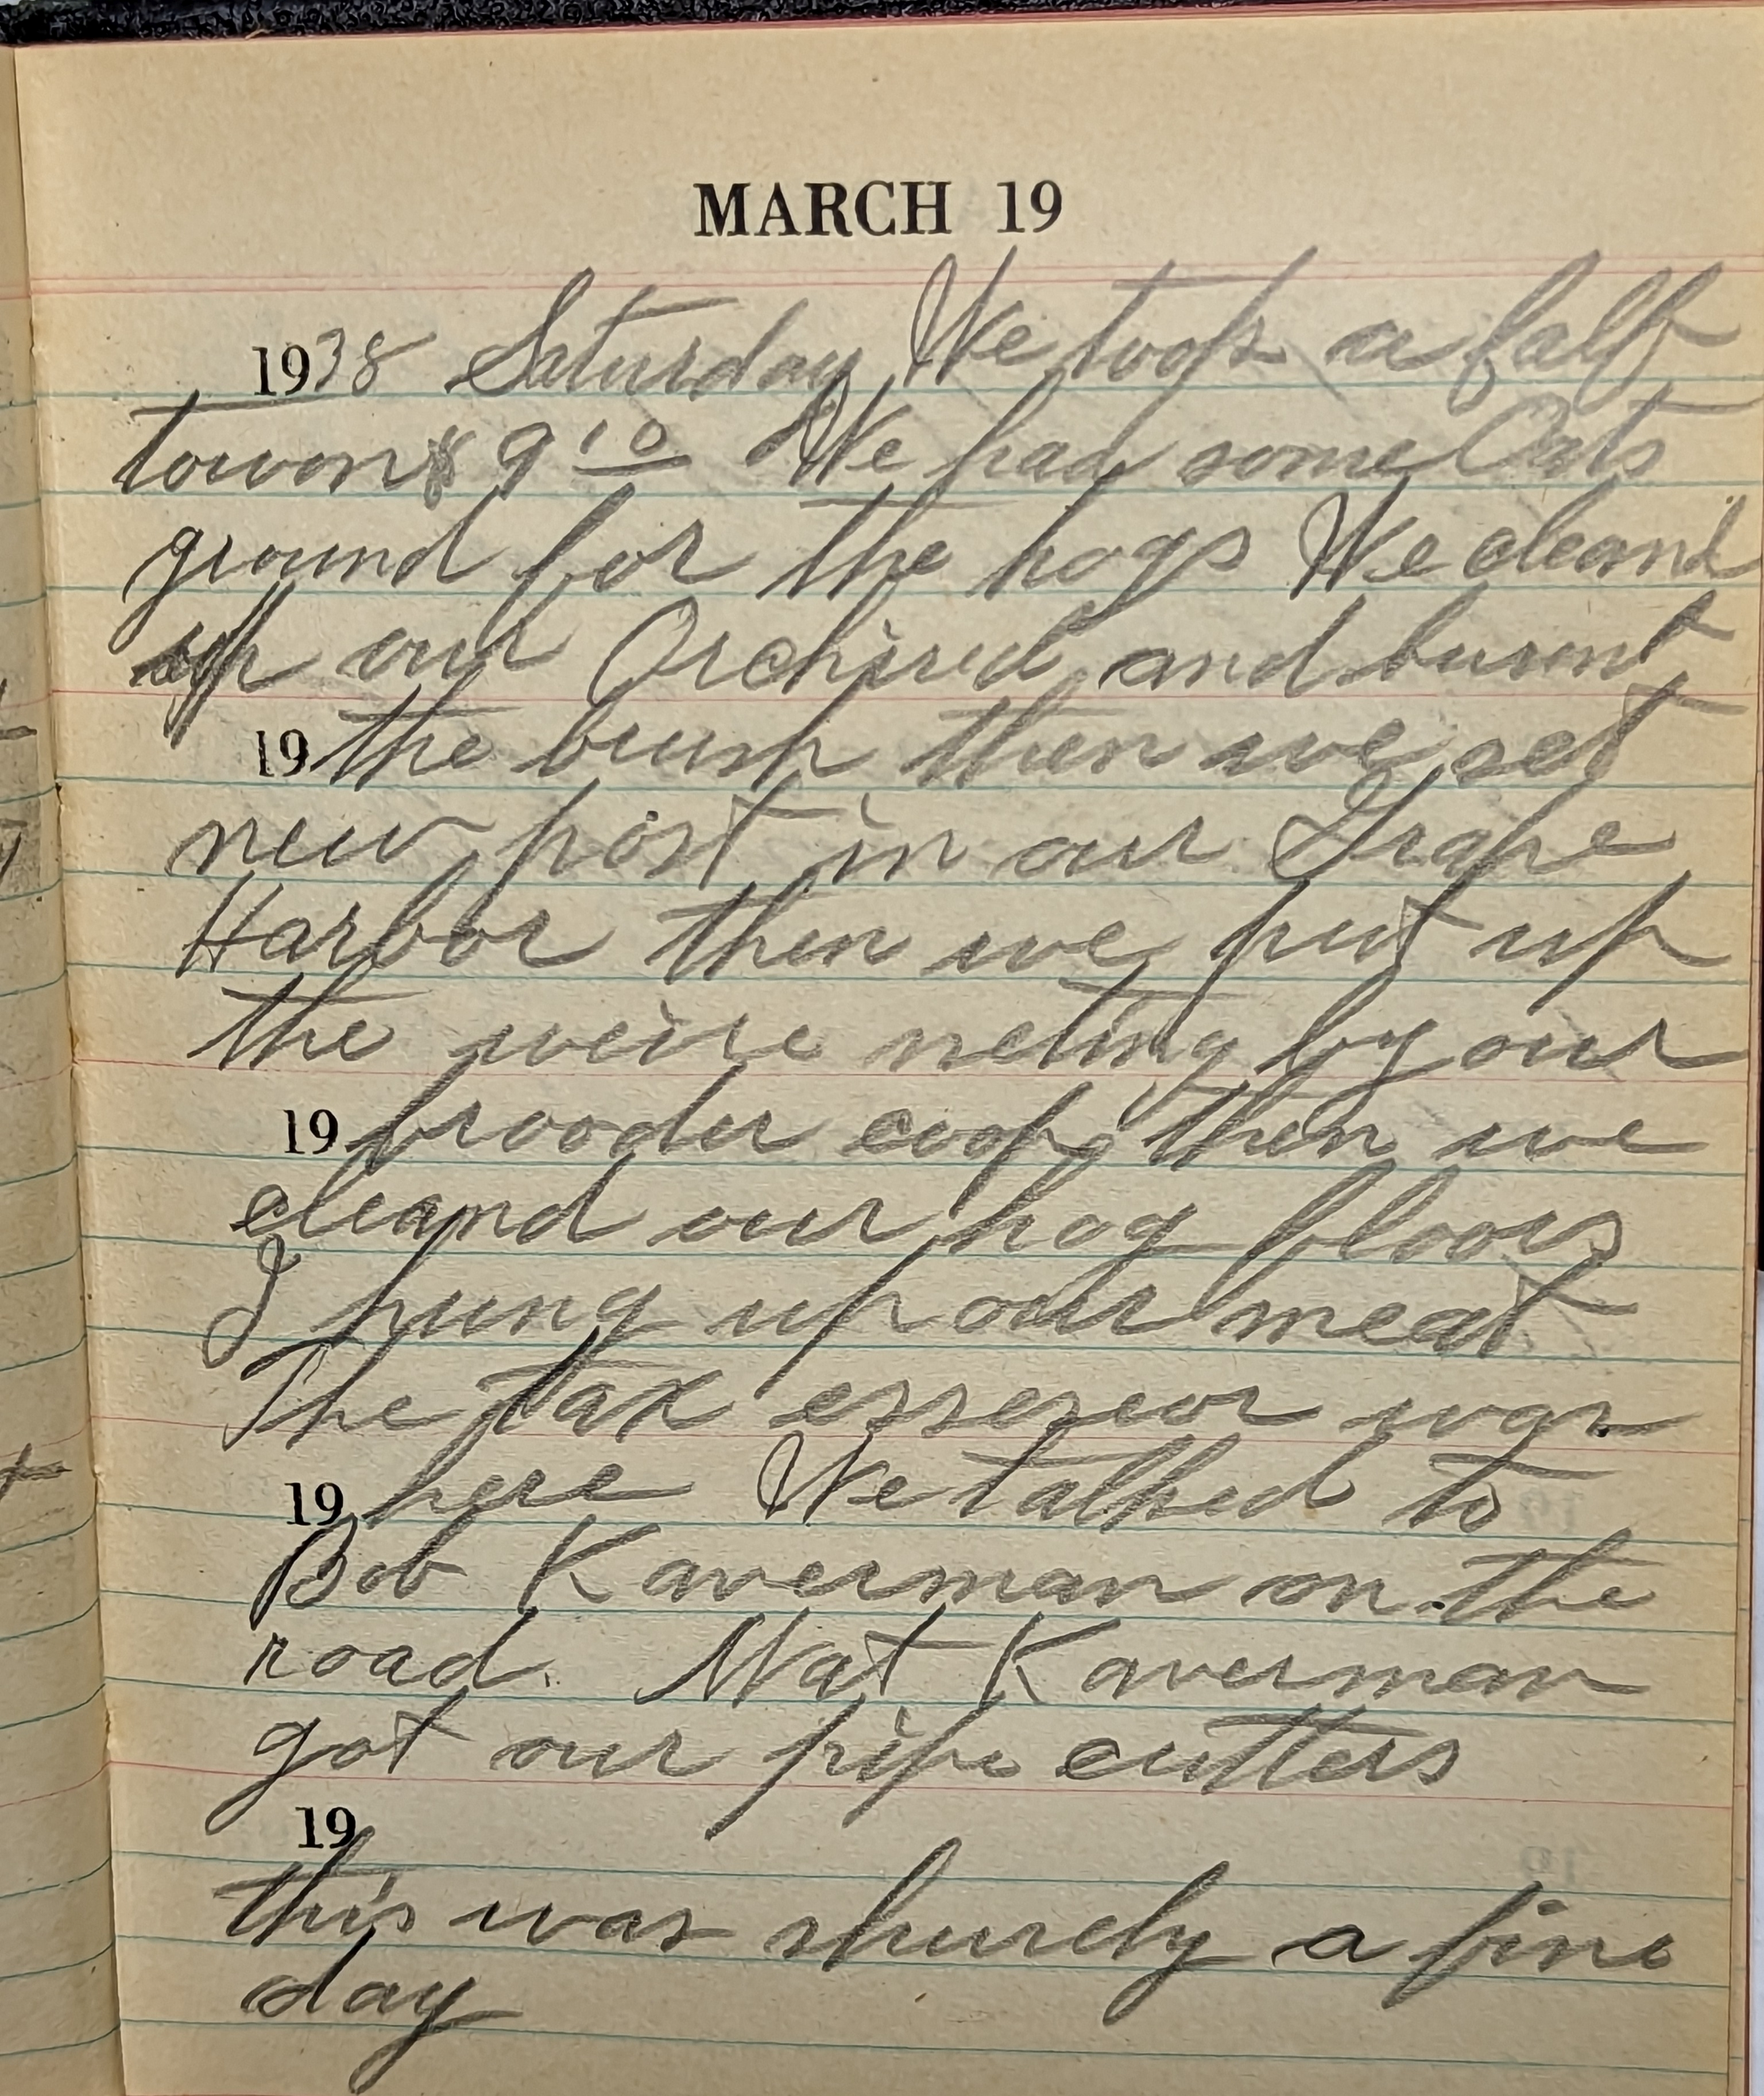 MARCH 19
1938 Saturday We took a calf
town $ 9 10 We had some Oats
ground for the hogs We cleand
up our Orchired and burnt
19 the brush then we set
new post in our Grape
Harbor then we put up
the weire neting by our
19 brooder coop then we
cleand our hog floors
I hung up our meat
The tax essesor was
19 here We talked to
Bob Kaverman on the
road. Mat Kaverman
got our pipe cutters
19
this was shurely a fine
day